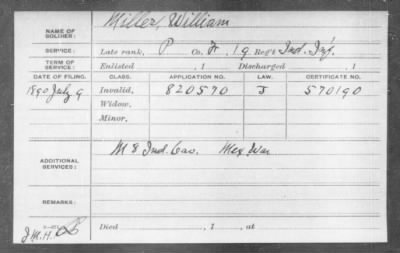 NAME OF SOLDIER: Miller, William
SERVICE: Late rank, P Co. 19 Reg't Ind. Inf.
TERM OF SERVICE: Enlisted , 1 Discharged , 1
DATE OF FILING. CLASS. APPLICATION NO. LAW. CERTIFICATE NO.
1890 July 9 Invalid, 820570 J 570190
Widow,
Minor,
ADDITIONAL SERVICES: M 8 Ind. Cav. Mex. War
REMARKS:
J.M.H. Died , 1 , at